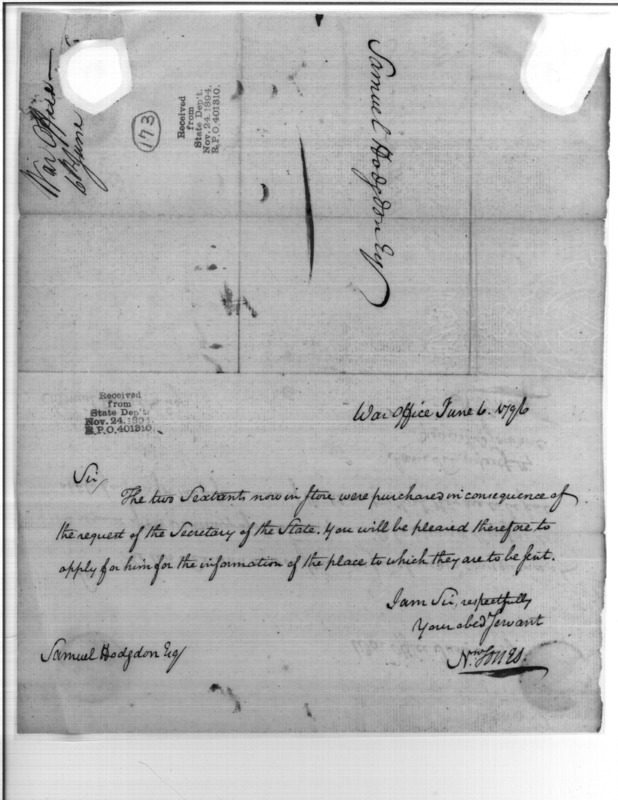 War Office
6 June
173
Received
from
State Dep't.
Nov. 24. 1894.
R.P.O. 401310.
Samuel Hodgdon Esq
Received
from
State Dep't.
Nov. 24. 1894.
R.P.O. 401310.
War Office June 6. 1796
Sir/
The two Sextents now in store were purchased in consequence of
the request of the Secretary of the State. You will be pleased therefore to
apply for him for the information of the place to which they are to be sent.
I am Sir, respectfully
Your obed Servant
Nn Jones.
Samuel Hodgdon Esq